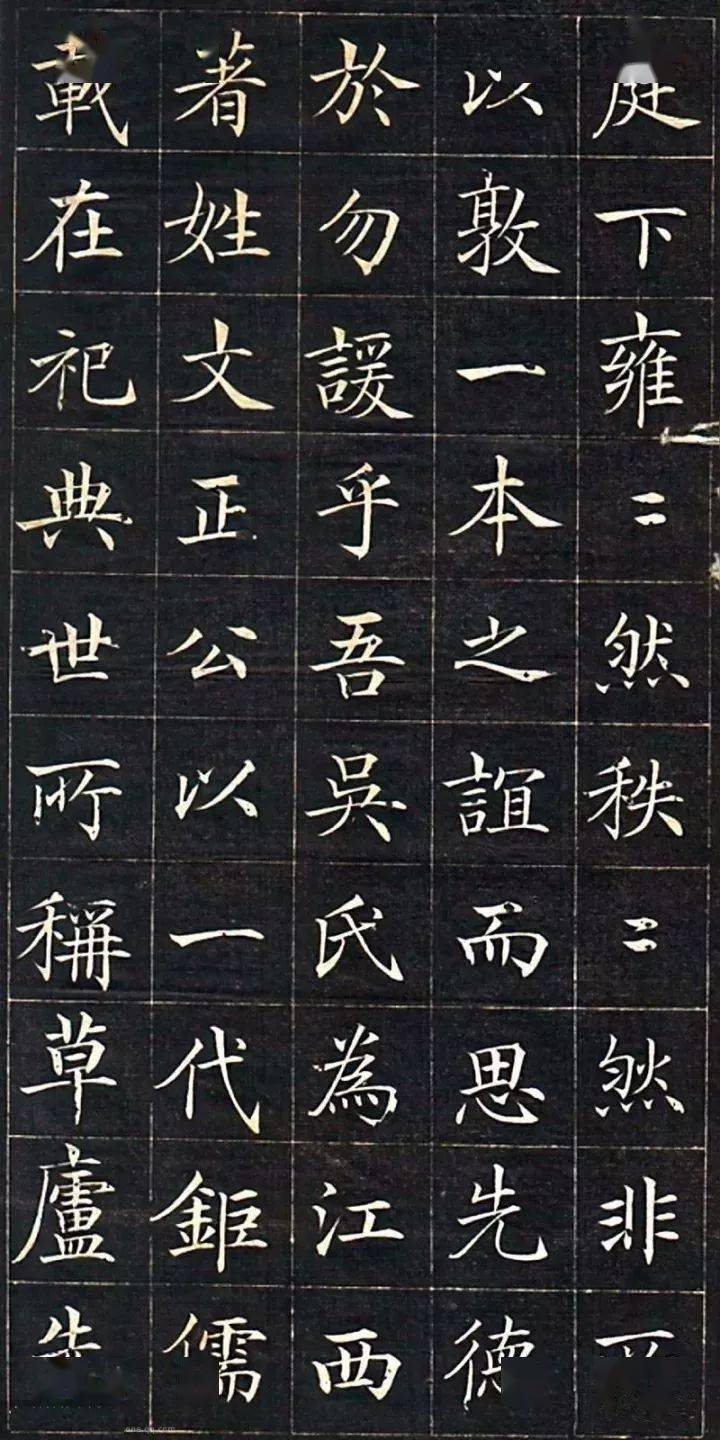 庭下雍〻然秩〻然非
以敦一本之誼而思先德
於勿諼乎吾吳氏為江西
著姓文正公以一代鉅儒
載在祀典世所稱草廬先